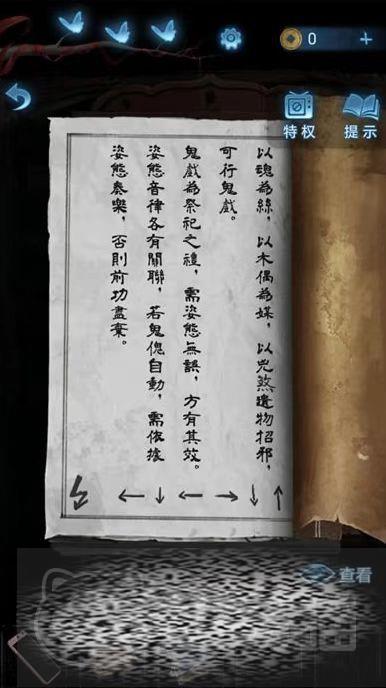 0
特权
提示
以魂為絲，以木偶為媒，以兇煞遺物招邪，
可行鬼戲。
鬼戲為祭祀之禮，需姿態無誤，方有其效。
姿態音律各有關聯，若鬼傀自動，需依據
姿態奏樂，否則前功盡棄。
↑↓→←↓←
查看